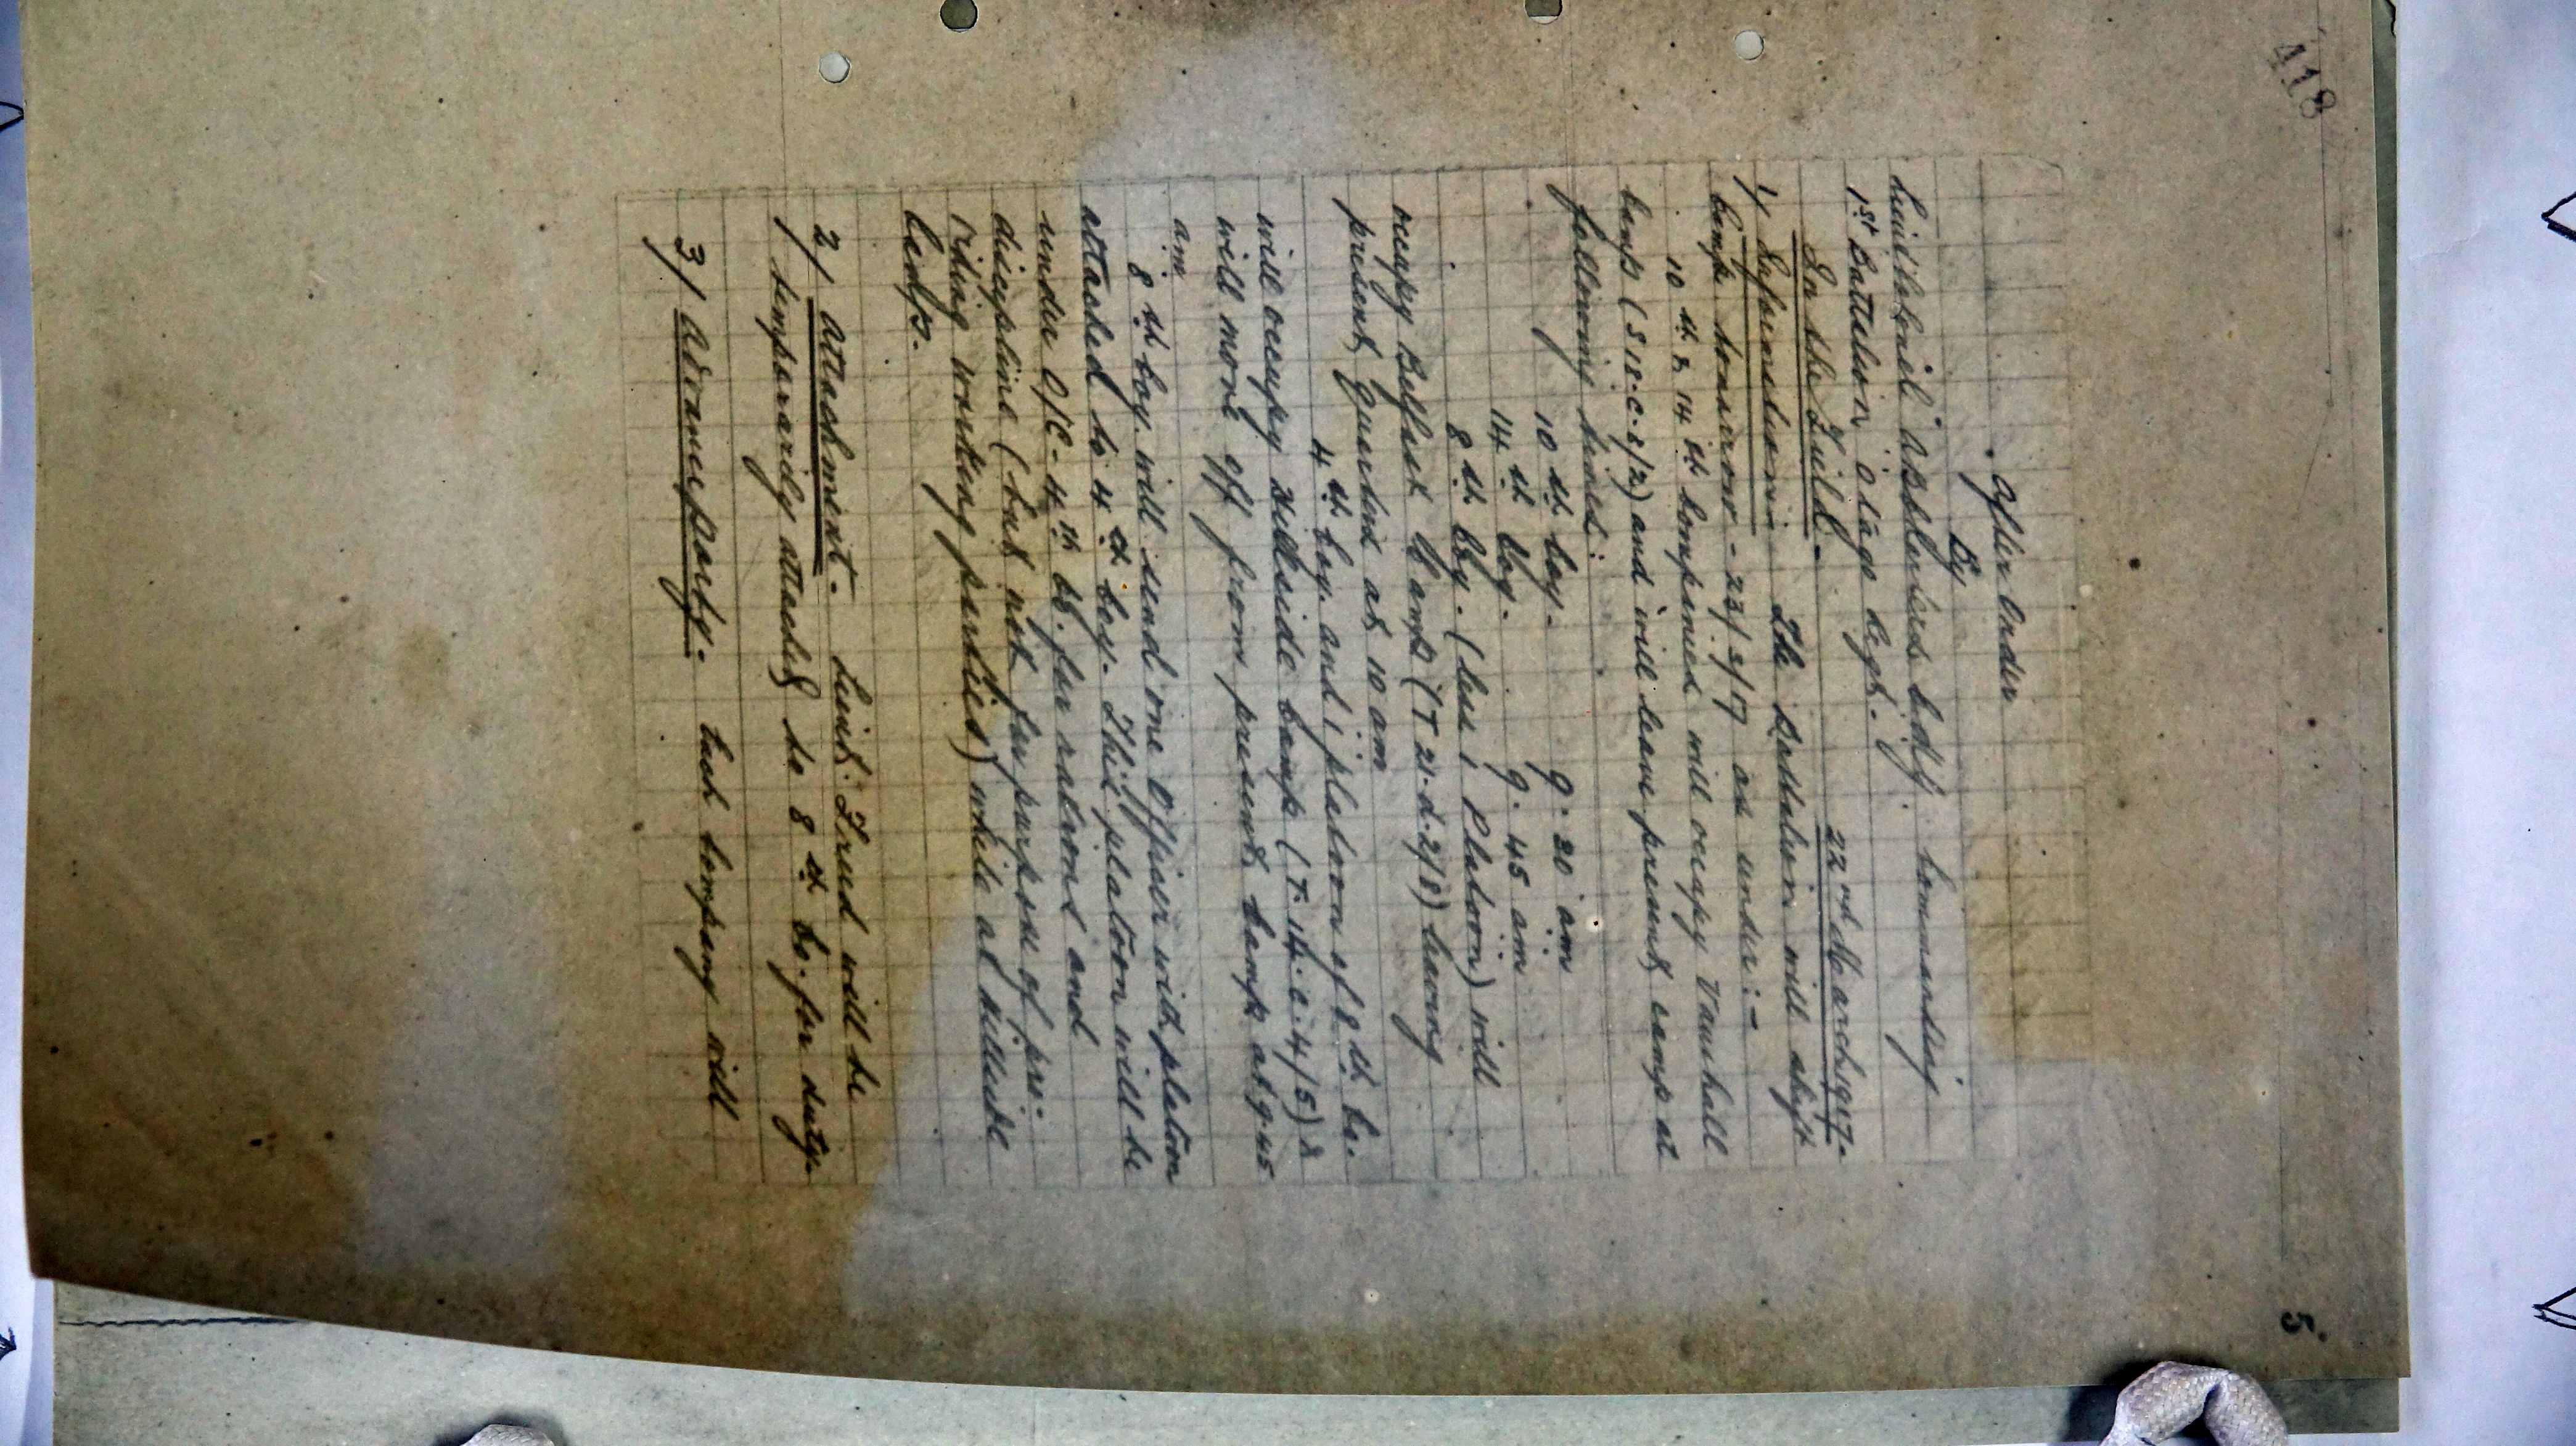 418
5.
After Order
By
Lieut Colonel A.B. Charters Cmdg Commanding
1st Battalion Otago Regt.
In the Field - 22nd March 1917.
1/ Information The Battalion will shift
Camp tomorrow - 23/3/17 as under :-
10th & 14th Companies will occupy Vauxhall
Camp (S 18.C.1/2) and will leave present camp at
following times :
10th Coy. 9.30 am
14th Coy. 9.45 am
8th Coy. (less 1 Platoon) will
occupy Belfast Camp (T 21.d.2/8) leaving
present Quarters at 10 am
4th Coy. and 1 platoon of 8th Co.
will occupy Hillside Camp (T.14.c.4/5) &
will move off from present camp at 9.45
am
8th Coy. will send one Officer with platoon
attached to 4th Coy. This platoon will be
under O/C - 4th Co. for rations and
discipline (but not for purposes of pro-
viding working parties) while at Hillside
Camp.
2/ Attachment - Lieut. will be
temporarily attached to 8th Co. for duty.
3/ Advance party. Each Company will